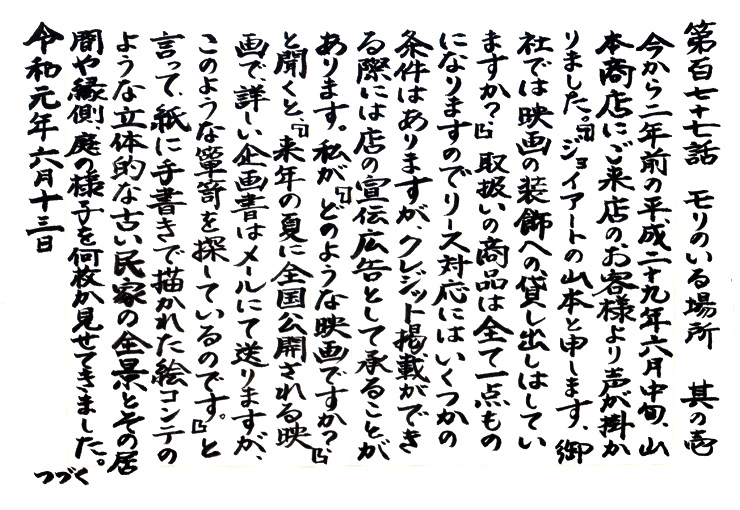 第百七十七話　モリのいる場所　其の壱
今から二年前の平成二十九年六月中旬、山
本商店にご来店のお客様より声が掛か
りました。「ジョイアートの山本と申します、御
社では映画の装飾への貸し出しはしてい
ますか？」取扱いの商品は全て一点もの
になりますのでリース対応にはいくつかの
条件はありますが、クレジット掲載ができ
る際には店の宣伝広告として承ることが
あります。私が「どのような映画ですか？」
と聞くと、「来年の夏に全国公開される映
画で、詳しい企画書はメールにて送りますが、
このような箪笥を探しているのです。」と
言って、紙に手書きで描かれた絵コンテの
ような立体的な古い民家の全景とその居
間や縁側、庭の様子を何枚か見せてきました。
つづく
令和元年六月十三日